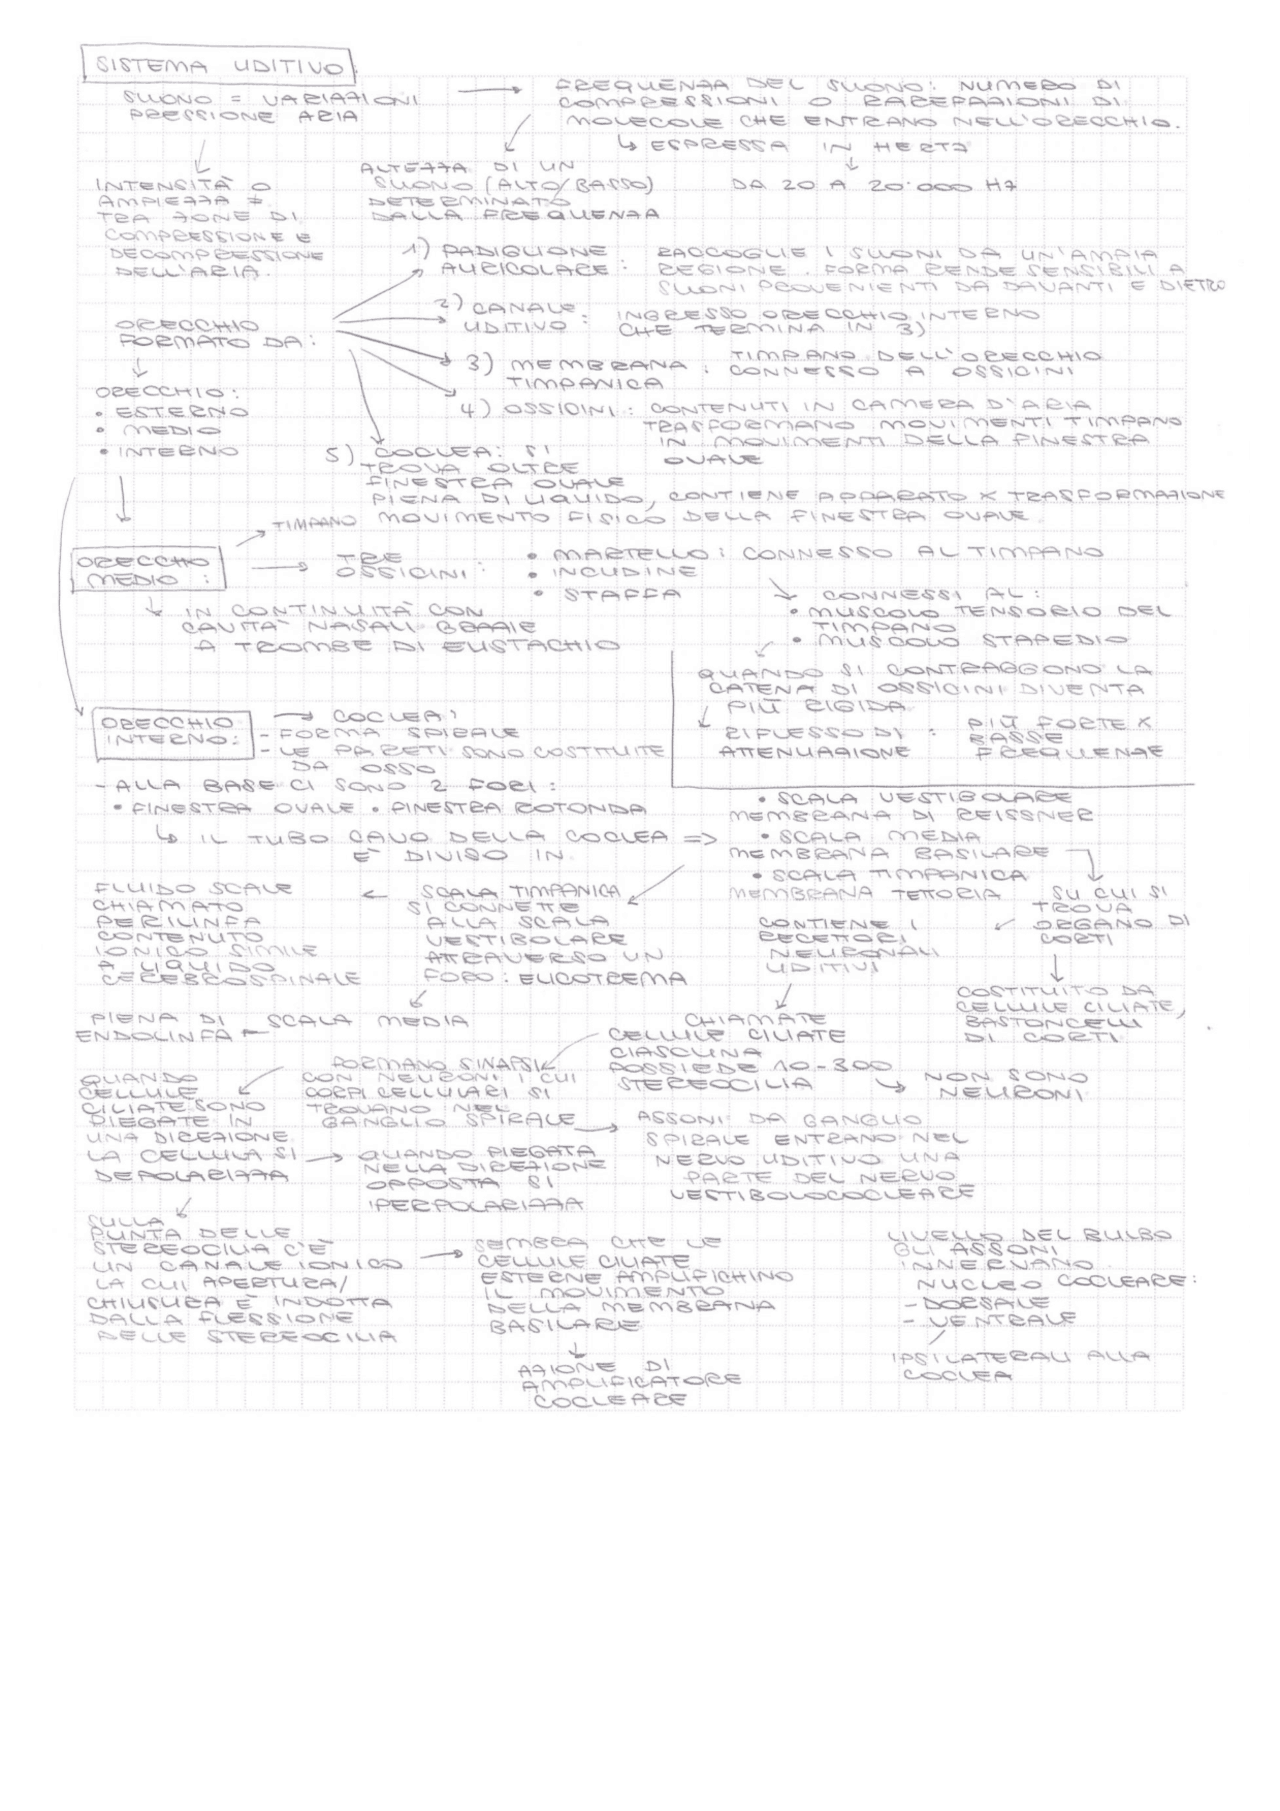 SISTEMA UDITIVO
SUONO = VARIAZIONI
PRESSIONE ARIA
→ FREQUENZA DEL SUONO: NUMERO DI
COMPRESSIONI O RAREFAZIONI DI
MOLECOLE CHE ENTRANO NELL'ORECCHIO.
↳ ESPRESSA IN HERTZ
DA 20 A 20.000 HZ
ALTEZZA DI UN
SUONO (ALTO/BASSO)
DETERMINATO
DALLA FREQUENZA
INTENSITÀ O
AMPIEZZA ≠
TRA ZONE DI
COMPRESSIONE E
DECOMPRESSIONE
DELL'ARIA.
ORECCHIO
FORMATO DA:
1) PADIGLIONE
AURICOLARE:
RACCOGLIE I SUONI DA UN'AMPIA
REGIONE. FORMA RENDE SENSIBILI A
SUONI PROVENIENTI DA DAVANTI E DIETRO
2) CANALE
UDITIVO:
INGRESSO ORECCHIO INTERNO
CHE TERMINA IN 3)
3) MEMBRANA:
TIMPANICA
TIMPANO DELL'ORECCHIO
CONNESSO A OSSICINI
4) OSSICINI: CONTENUTI IN CAMERA D'ARIA
TRASFORMANO MOVIMENTI TIMPANO
IN MOVIMENTI DELLA FINESTRA
OVALE
5) COCLEA: SI
TROVA OLTRE
FINESTRA OVALE
PIENA DI LIQUIDO, CONTIENE APPARATO X TRASFORMAZIONE
MOVIMENTO FISICO DELLA FINESTRA OVALE
ORECCHIO:
• ESTERNO
• MEDIO
• INTERNO
ORECCHIO
MEDIO:
→ TIMPANO
→ TRE
OSSICINI:
• MARTELLO: CONNESSO AL TIMPANO
• INCUDINE
• STAFFA
IN CONTINUITÀ CON
CAVITÀ NASALI GRAZIE
A TROMBE DI EUSTACHIO
CONNESSI AL:
• MUSCOLO TENSORIO DEL
TIMPANO
• MUSCOLO STAPEDIO
QUANDO SI CONTRAGGONO LA
CATENA DI OSSICINI DIVENTA
PIÙ RIGIDA
RIFLESSO DI
ATTENUAZIONE:
PIÙ FORTE X
BASSE
FREQUENZE
ORECCHIO
INTERNO:
→ COCLEA:
- FORMA SPIRALE
- LE PARETI SONO COSTITUITE
DA OSSO
- ALLA BASE CI SONO 2 FORI:
• FINESTRA OVALE • FINESTRA ROTONDA
↳ IL TUBO CAVO DELLA COCLEA =>
È DIVISO IN
• SCALA VESTIBOLARE
MEMBRANA DI REISSNER
• SCALA MEDIA
MEMBRANA BASILARE
• SCALA TIMPANICA
MEMBRANA TETTORIA
SU CUI SI
TROVA
ORGANO DI
CORTI
CONTIENE I
RECETTORI
NEURONALI
UDITIVI
SCALA TIMPANICA
SI CONNETTE
ALLA SCALA
VESTIBOLARE
ATTRAVERSO UN
FORO: ELICOTREMA
FLUIDO SCALE
CHIAMATO
PERILINFA
CONTENUTO
IONICO SIMILE
A LIQUIDO
CEREBROSPINALE
COSTITUITO DA
CELLULE CILIATE,
BASTONCELLI
DI CORTI
PIENA DI
ENDOLINFA ←
SCALA MEDIA
CHIAMATE
CELLULE CILIATE
CIASCUNA
POSSIEDE 10-300
STEREOCILIA
↳ NON SONO
NEURONI
FORMANO SINAPSI
CON NEURONI I CUI
CORPI CELLULARI SI
TROVANO NEL
GANGLIO SPIRALE
QUANDO
CELLULE
CILIATE SONO
PIEGATE IN
UNA DIREZIONE
LA CELLULA SI
DEPOLARIZZA
→ QUANDO PIEGATA
NELLA DIREZIONE
OPPOSTA SI
IPERPOLARIZZA
ASSONI DA GANGLIO
SPIRALE ENTRANO NEL
NERVO UDITIVO UNA
PARTE DEL NERVO
VESTIBOLOCOCLEARE
SULLA
PUNTA DELLE
STEREOCILIA C'È
UN CANALE IONICO
LA CUI APERTURA/
CHIUSURA È INDOTTA
DALLA FLESSIONE
DELLE STEREOCILIA
→ SEMBRA CHE LE
CELLULE CILIATE
ESTERNE AMPLIFICHINO
IL MOVIMENTO
DELLA MEMBRANA
BASILARE
AZIONE DI
AMPLIFICATORE
COCLEARE
LIVELLO DEL BULBO
GLI ASSONI
INNERVANO
NUCLEO COCLEARE:
- DORSALE
- VENTRALE
IPSILATERALI ALLA
COCLEA